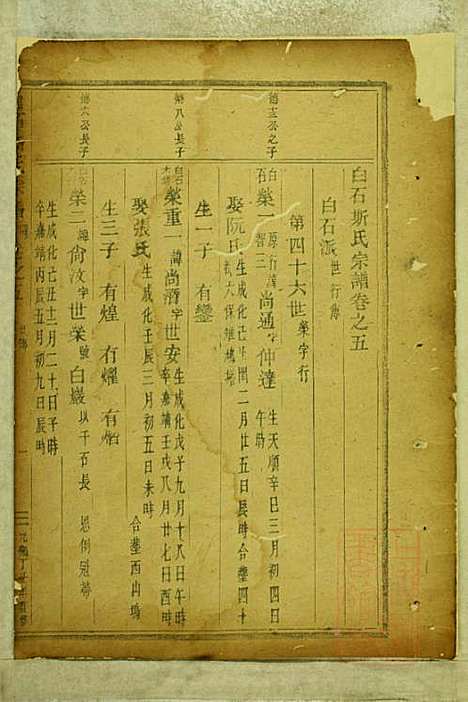 白石斯氏宗譜卷之五
白石派世行傳
第四十六世 榮字行
德三公之子
白石 榮一 原行 智三 諱尚通字仲達 生天順辛巳三月初四日午時
娶阮氏 生成化己丑閏二月廿五日辰時合塟四十
生一子 有鑾
德八公長子
榮重一 諱尚濟字世安 生成化戊子九月十八日午時 卒嘉靖壬戌八月廿七日酉時
娶張氏 生成化壬辰三月初五日未時 合塟西山塢
生三子 有煌 有燿 有焰
德六公長子
榮二 諱尚汶字世榮號白巖 以千百長 恩例冠帶
生成化己丑十二月二十日子時
卒嘉靖丙辰五月初九日辰時